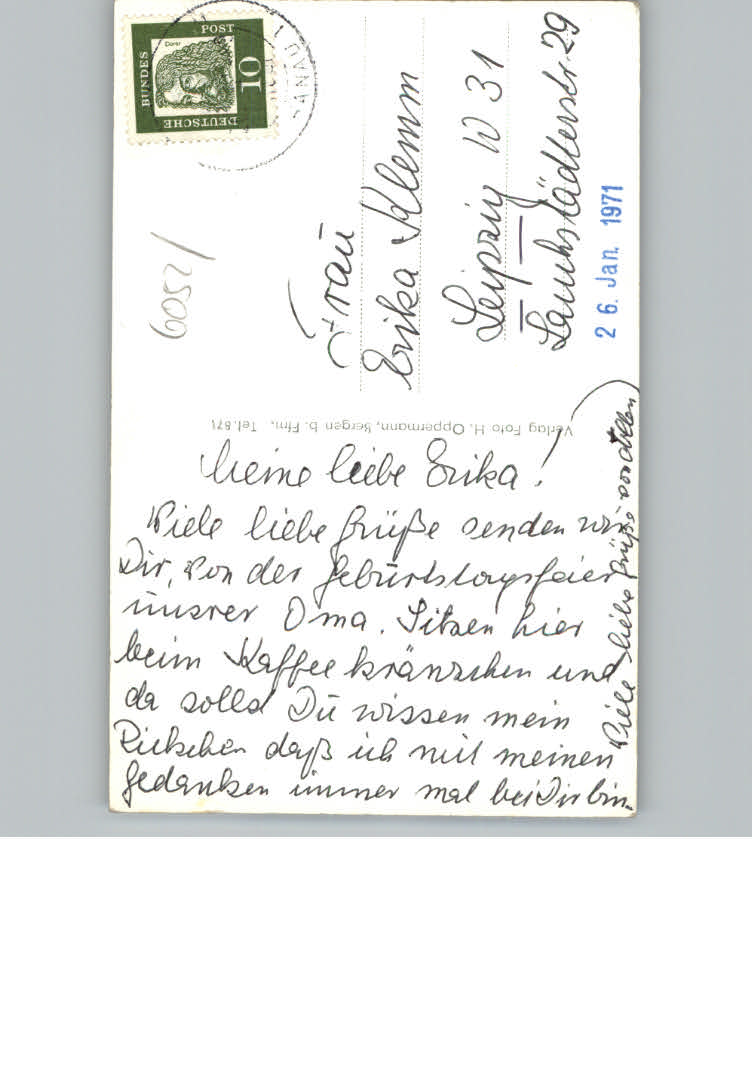 DEUTSCHE
BUNDES
POST
10
Dürer
HANAU 1
6052/
Frau
Erika Klemm
Leipzig W 31
Lauchstädterstr. 29
26. Jan. 1971
Verlag Foto H. Oppermann, Bergen b. Ffm., Tel. 871
Meine liebe Erika!
Viele liebe Grüße senden wir
Dir, von der Geburtstagsfeier
unsrer Oma. Sitzen hier
beim Kaffeekränzchen und
da sollst Du wissen mein
daß ich mit meinen
Gedanken immer mal bei Dir bin.
Viele liebe Grüße von allen